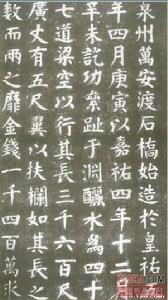 泉州萬安渡石橋始造於皇祐
年四月庚寅以嘉祐四年十二
辛未訖功絫趾于淵釃水為四十
七道梁空以行其長三千六百尺
廣丈有五尺翼以扶欄如其長之
數而兩之靡金錢一千四百萬求